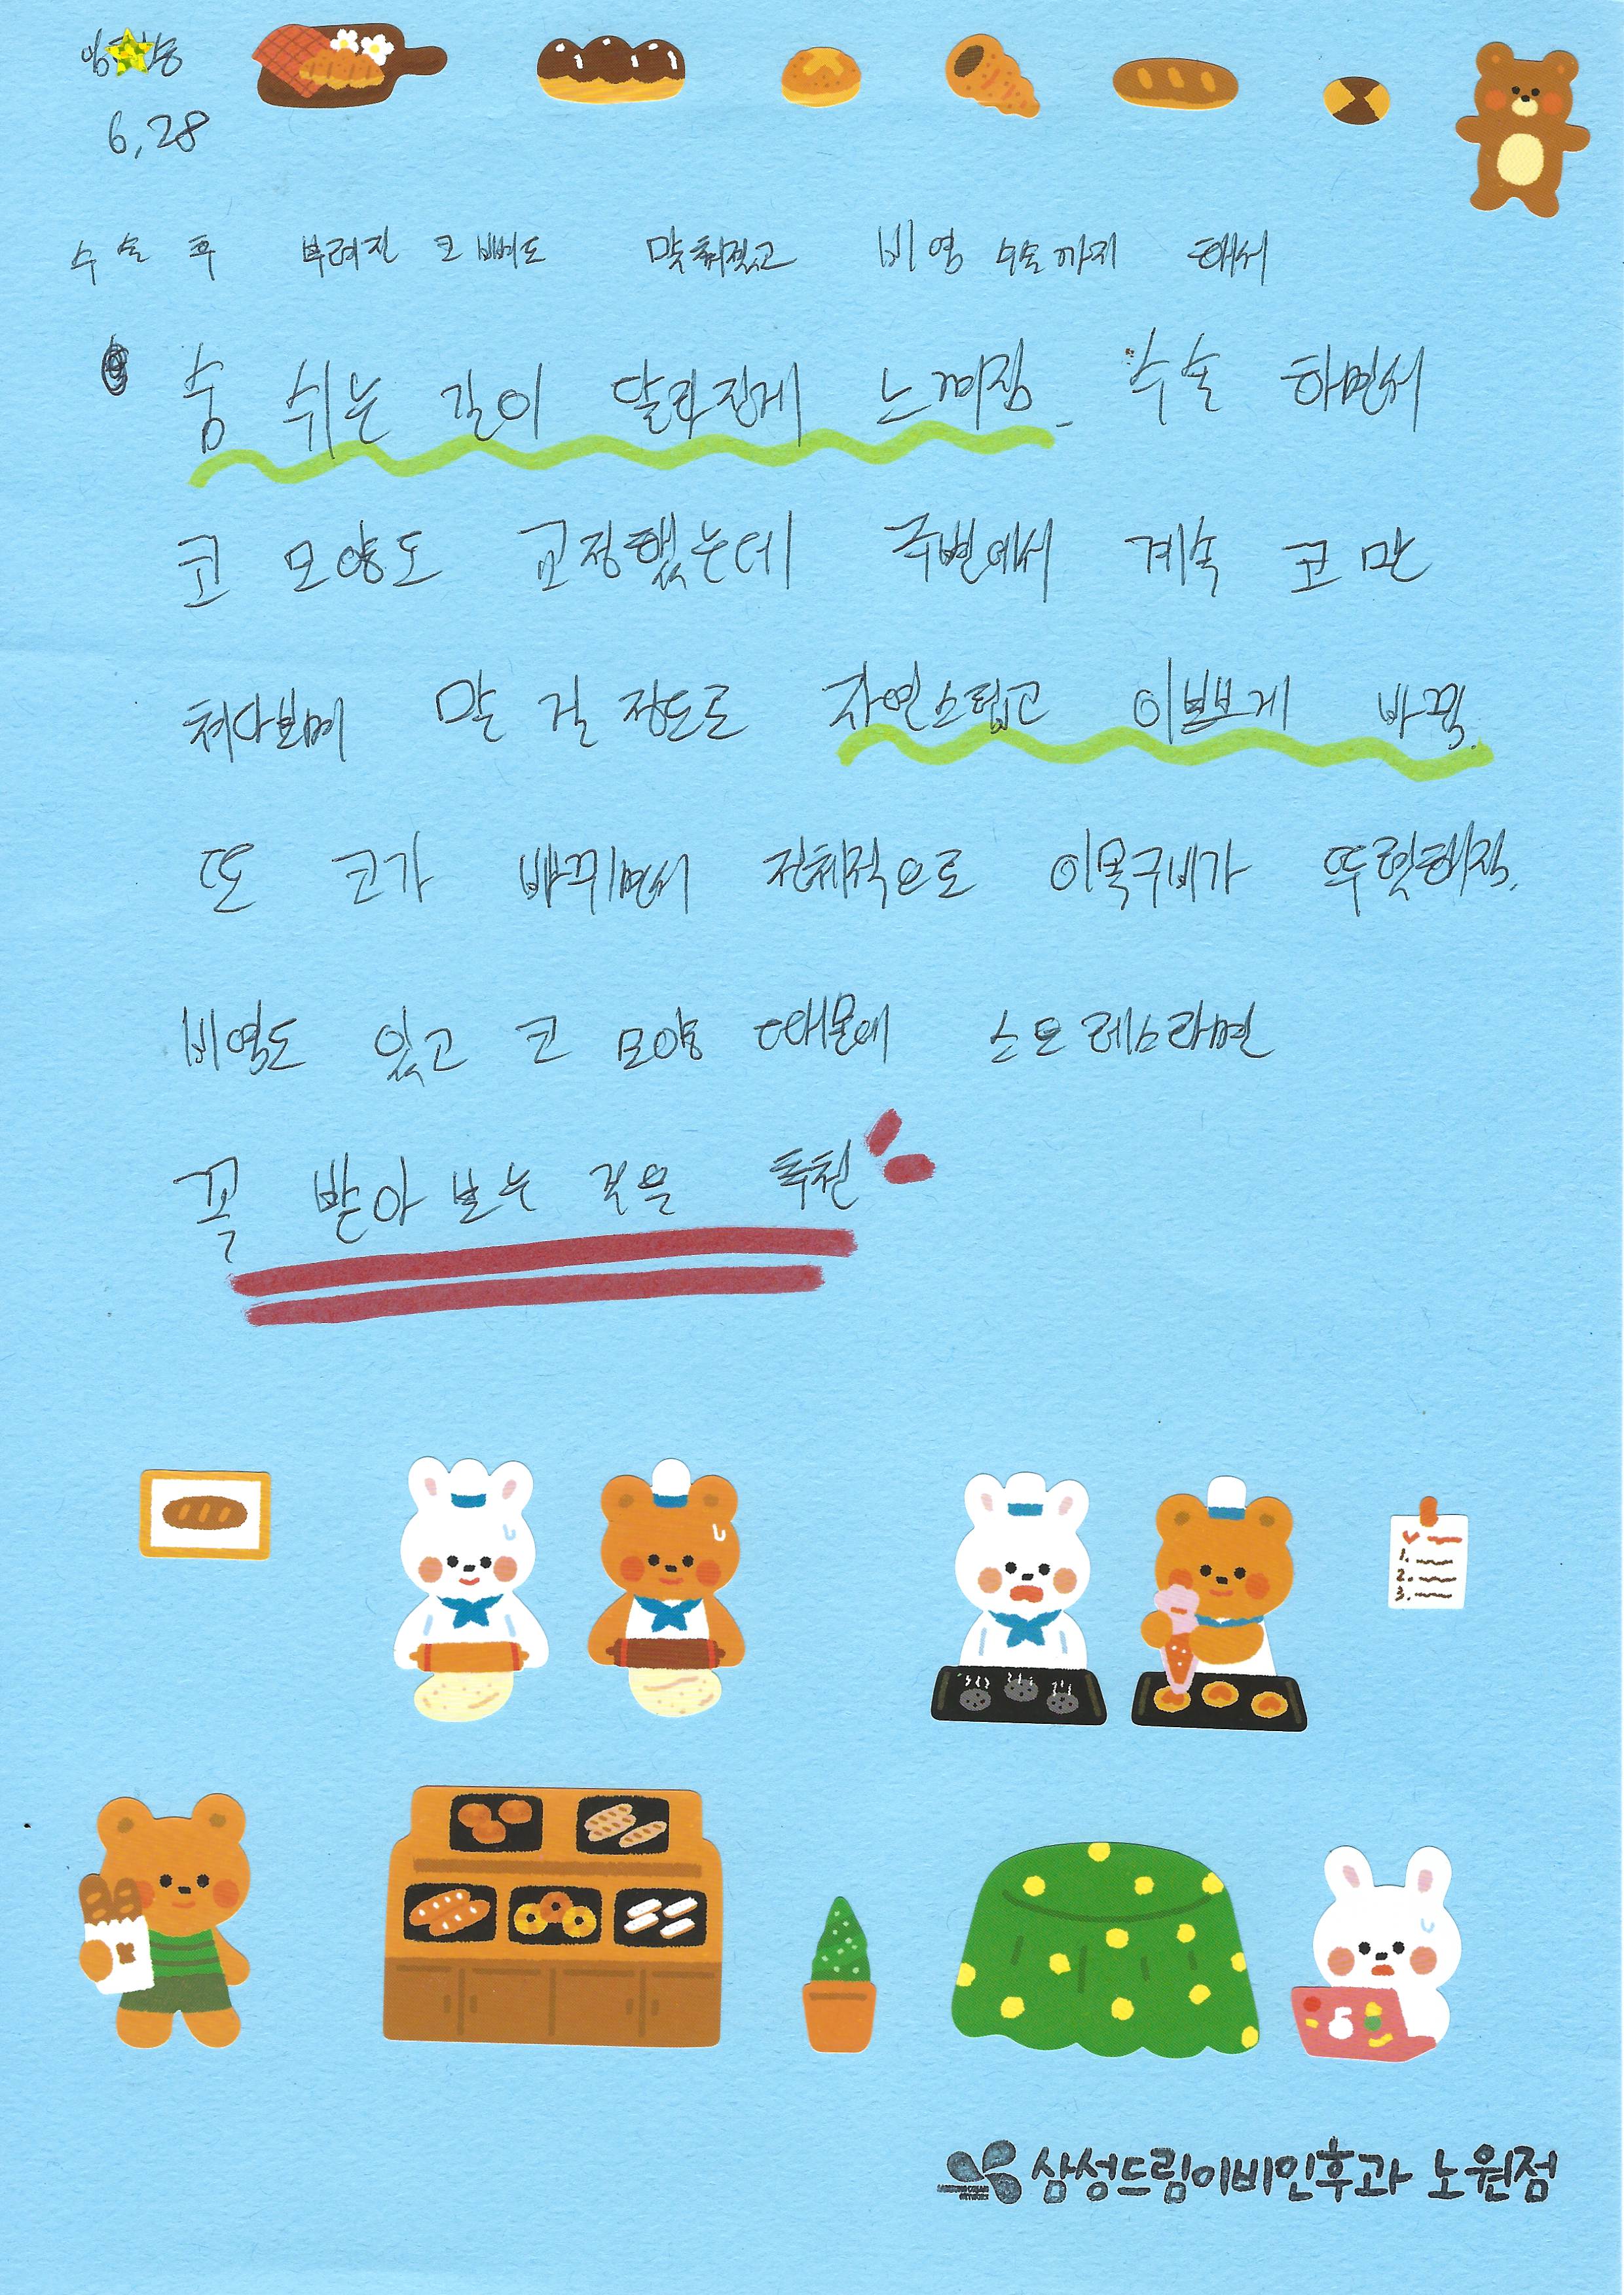 6.28
수술 후 부러진 코 뼈도 맞춰졌고 비염 수술까지 해서
숨 쉬는 길이 달라진게 느껴짐. 수술 하면서
코 모양도 교정했는데 주변에서 계속 코만
쳐다보며 말 걸 정도로 자연스럽고 이쁘게 바뀜.
또 코가 바뀌면서 전체적으로 이목구비가 뚜렷해짐.
비염도 있고 코 모양 때문에 스트레스라면
꼭 받아 보는 것을 추천
1.
2.
3.
삼성드림이비인후과 노원점